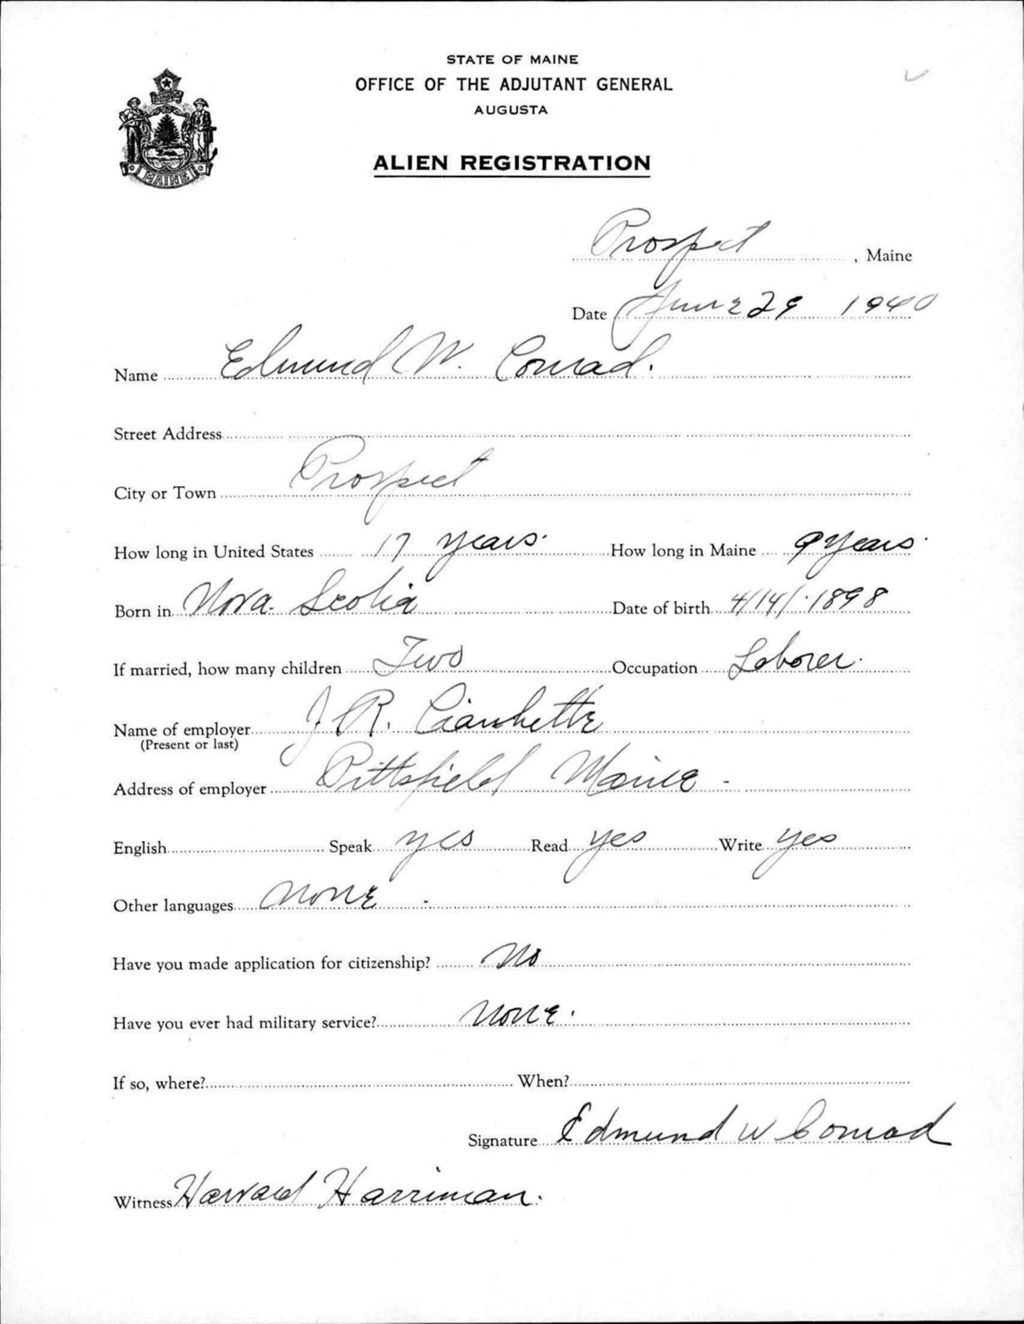 STATE OF MAINE
OFFICE OF THE ADJUTANT GENERAL
AUGUSTA
ALIEN REGISTRATION
MAINE
Prospect, Maine
Date June 29 1940
Name Edmund W. Conrad.
Street Address
City or Town Prospect
How long in United States 17 years. How long in Maine 9 years.
Born in Nova. Scotia Date of birth 4/14/.1898
If married, how many children Two Occupation Laborer.
Name of employer J R. Cianchette
(Present or last)
Address of employer Pittsfield Maine -
English Speak yes Read yes Write yes
Other languages none.
Have you made application for citizenship? No
Have you ever had military service? None.
If so, where? When?
Signature Edmund W Conrad
Witness Harvard Harriman.